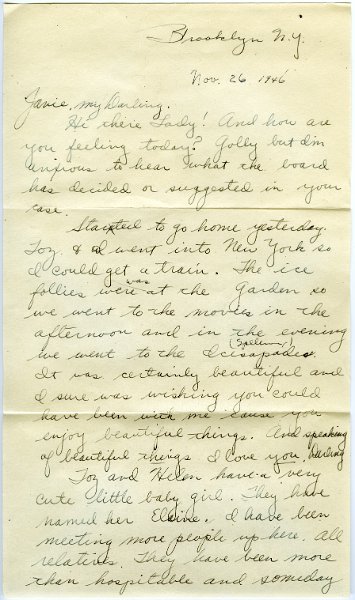 Brooklyn N.Y.
Nov. 26 1946
Janie, my Darling.
Hi there Lady! And how are
you feeling today? Golly but I'm
anxious to hear what the board
has decided or suggested in your
case.
Started to go home yesterday.
Toz & I went into New York so
I could get a train. The ice
follies were was at the Garden so
we went to the movies in the
afternoon and in the evening
(Spelling!)
we went to the Icecapades.
It was certainly beautiful and
I sure was wishing you could
have been with me cause you
enjoy beautiful things. And speaking
of beautiful things I love you, darling
Toz and Helen have a very
cute little baby girl. They have
named her Elaine. I have been
meeting more people up here. All
relatives. They have been more
than hospitable and someday